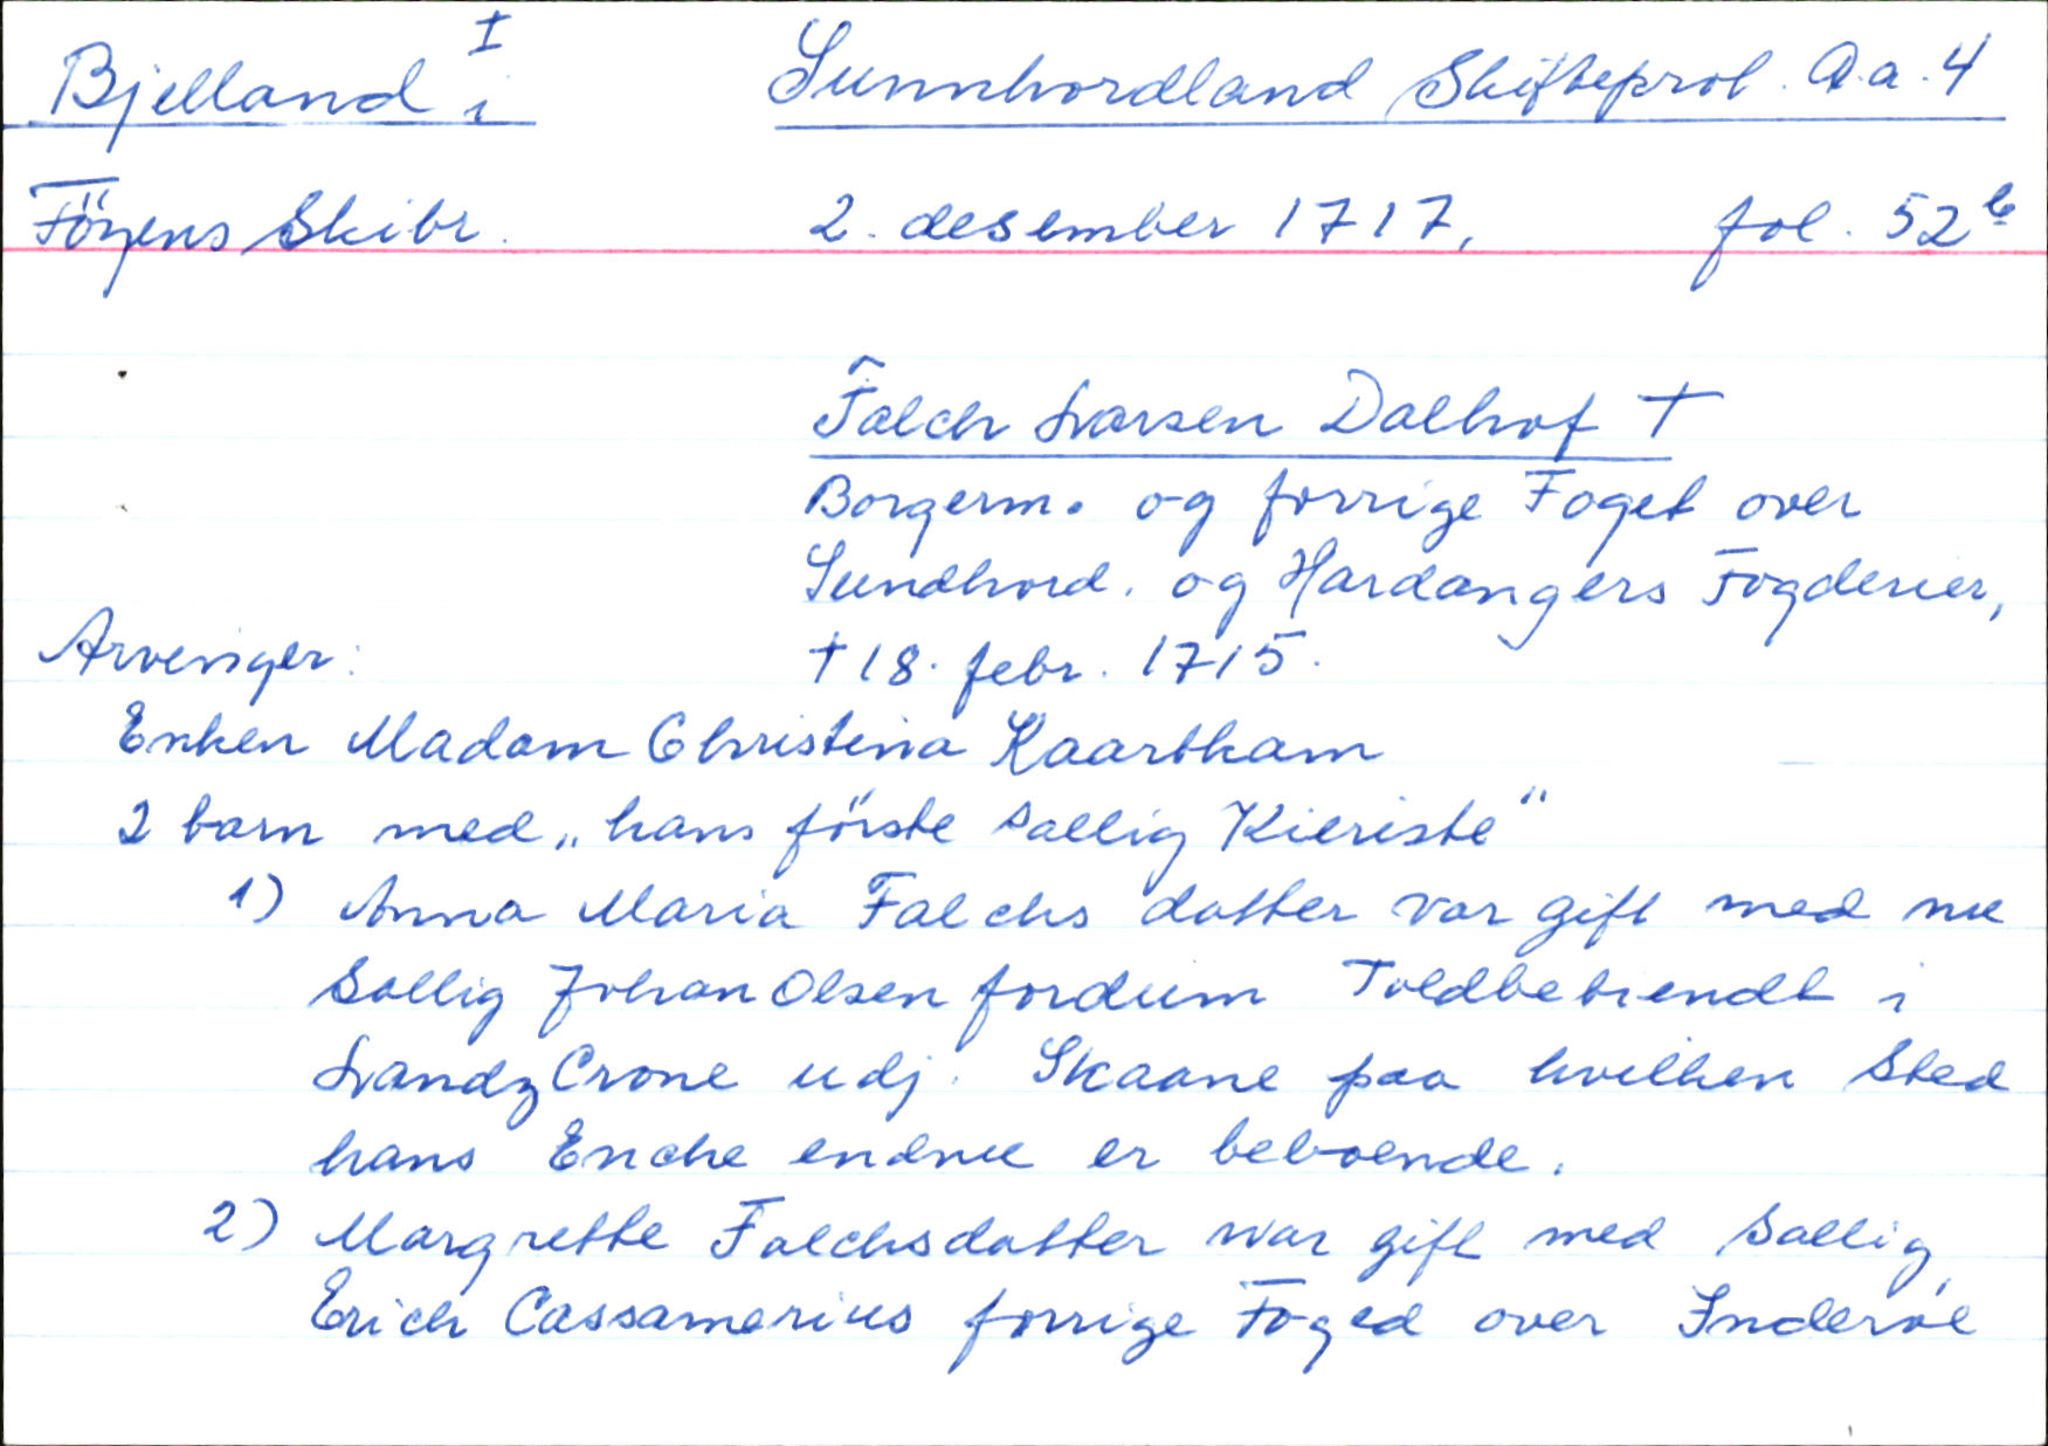 I
Bjelland i Sunnhordland Skifteprot. A.a.4
Föyens Skibr. 2. desember 1717, fol. 52b
Falch Larsen Dalhof †
Borgerm. og forrige Foget over
Sundhord. og Hardangers Fogderier,
Arvenger: † 18. febr. 1715.
Enken Madam Christina Kaartham
2 barn med „hans förste sallig Kieriste"
1) Anna Maria Falchs datter var gift med nu
Sallig Johan Olsen fordum Toldbetiendt i
LandzCrone udj Skaane paa hvilken Sted
hans Enche endnu er beboende.
2) Margrette Falchsdatter war gift med Sallig
Erich Cassamerius forrige Foged over Inderöe